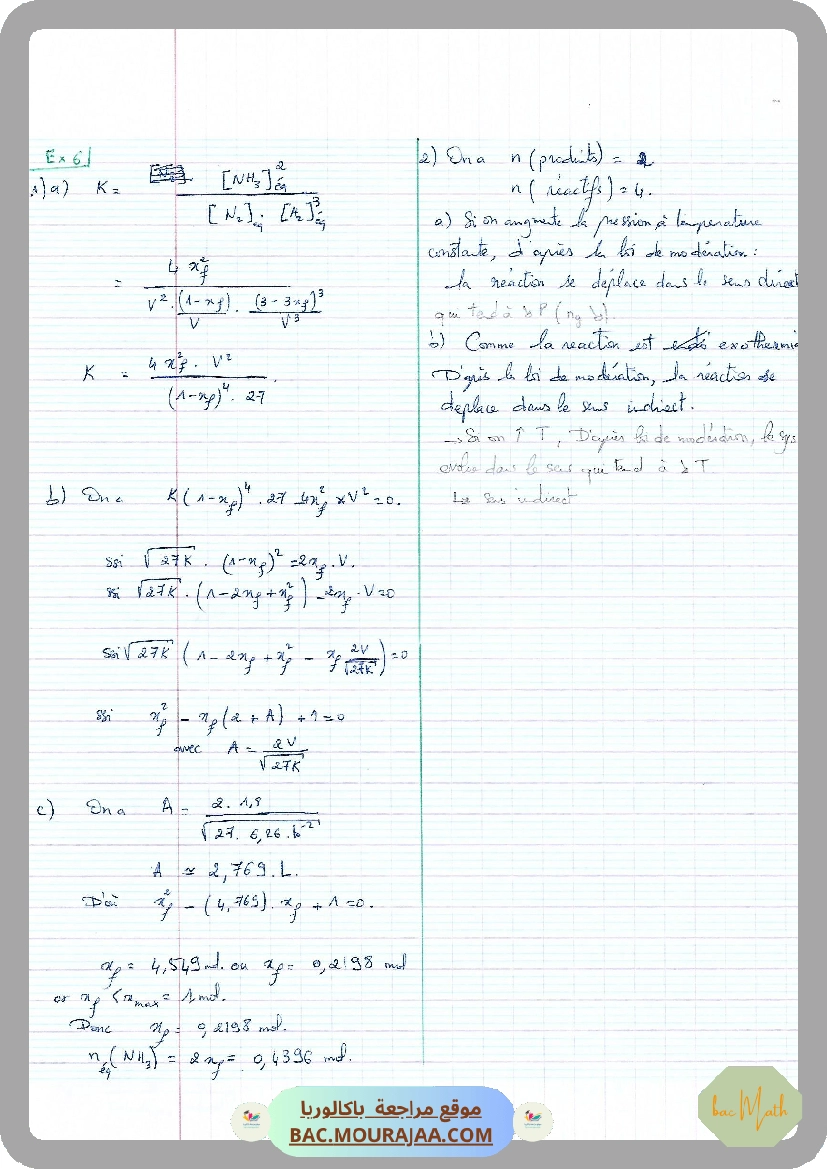 Ex 6
1) a) K = [NH₃]²éq / [N₂]éq [H₂]³éq
= 4 xf² / V² · (1-xf)/V · (3-3xf)³/V³
K = 4 xf² · V² / (1-xf)⁴ · 27
b) On a K(1-xf)⁴ · 27 - 4xf² × V² = 0.
ssi √27K · (1-xf)² = 2xf · V.
ssi √27K · (1 - 2xf + xf²) - 2xf · V = 0
ssi √27K (1 - 2xf + xf² - xf 2V/√27K) = 0
ssi xf² - xf(2 + A) + 1 = 0
avec A = 2V/√27K
c) On a A = 2. 1,8 / √27. 6,26. 10⁻²
A ≃ 2,769. L.
D'où xf² - (4,769). xf + 1 = 0.
xf = 4,549 mol. ou xf = 0,2198 mol
or xf < xmax = 1 mol.
Donc xf = 0,2198 mol.
néq(NH₃) = 2xf = 0,4396 mol.
2) On a n (produits) = 2
n (réactifs) = 4.
a) Si on augmente la pression à température
constante, d'après la loi de modération :
la réaction se déplace dans le sens direct
qui tend à ↘ P (ng ↘)
b) Comme la reaction est exothermi
D'après la loi de modération, la réaction se
deplace dans le sens indirect.
→ Si on ↑ T, D'après loi de modération, le sys
evolue dans le sens qui tend à ↘ T
↳ Sens indirect
موقع مراجعة باكالوريا
BAC.MOURAJAA.COM
bac Math